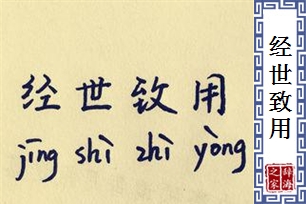 经世致用
jīng shì zhì yòng
经世致用
辞海之家